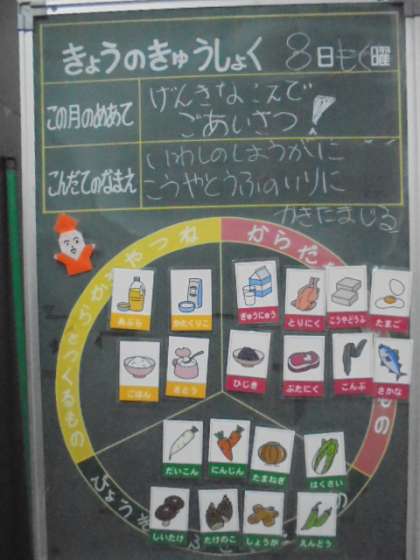 きょうのきゅうしょく 8日もく曜
この月のめあて
げんきなこえで
ごあいさつ!
こんだてのなまえ
いわしのしょうがに
こうやとうふのいりに
かきたまじる
ねつやちからがでるもの
からだをつくるもの
あぶら かたくりこ ぎゅうにゅう とりにく こうやどうふ たまご
ごはん さとう ひじき ぶたにく こんぶ さかな
だいこん にんじん たまねぎ はくさい
しいたけ たけのこ しょうが えんどう